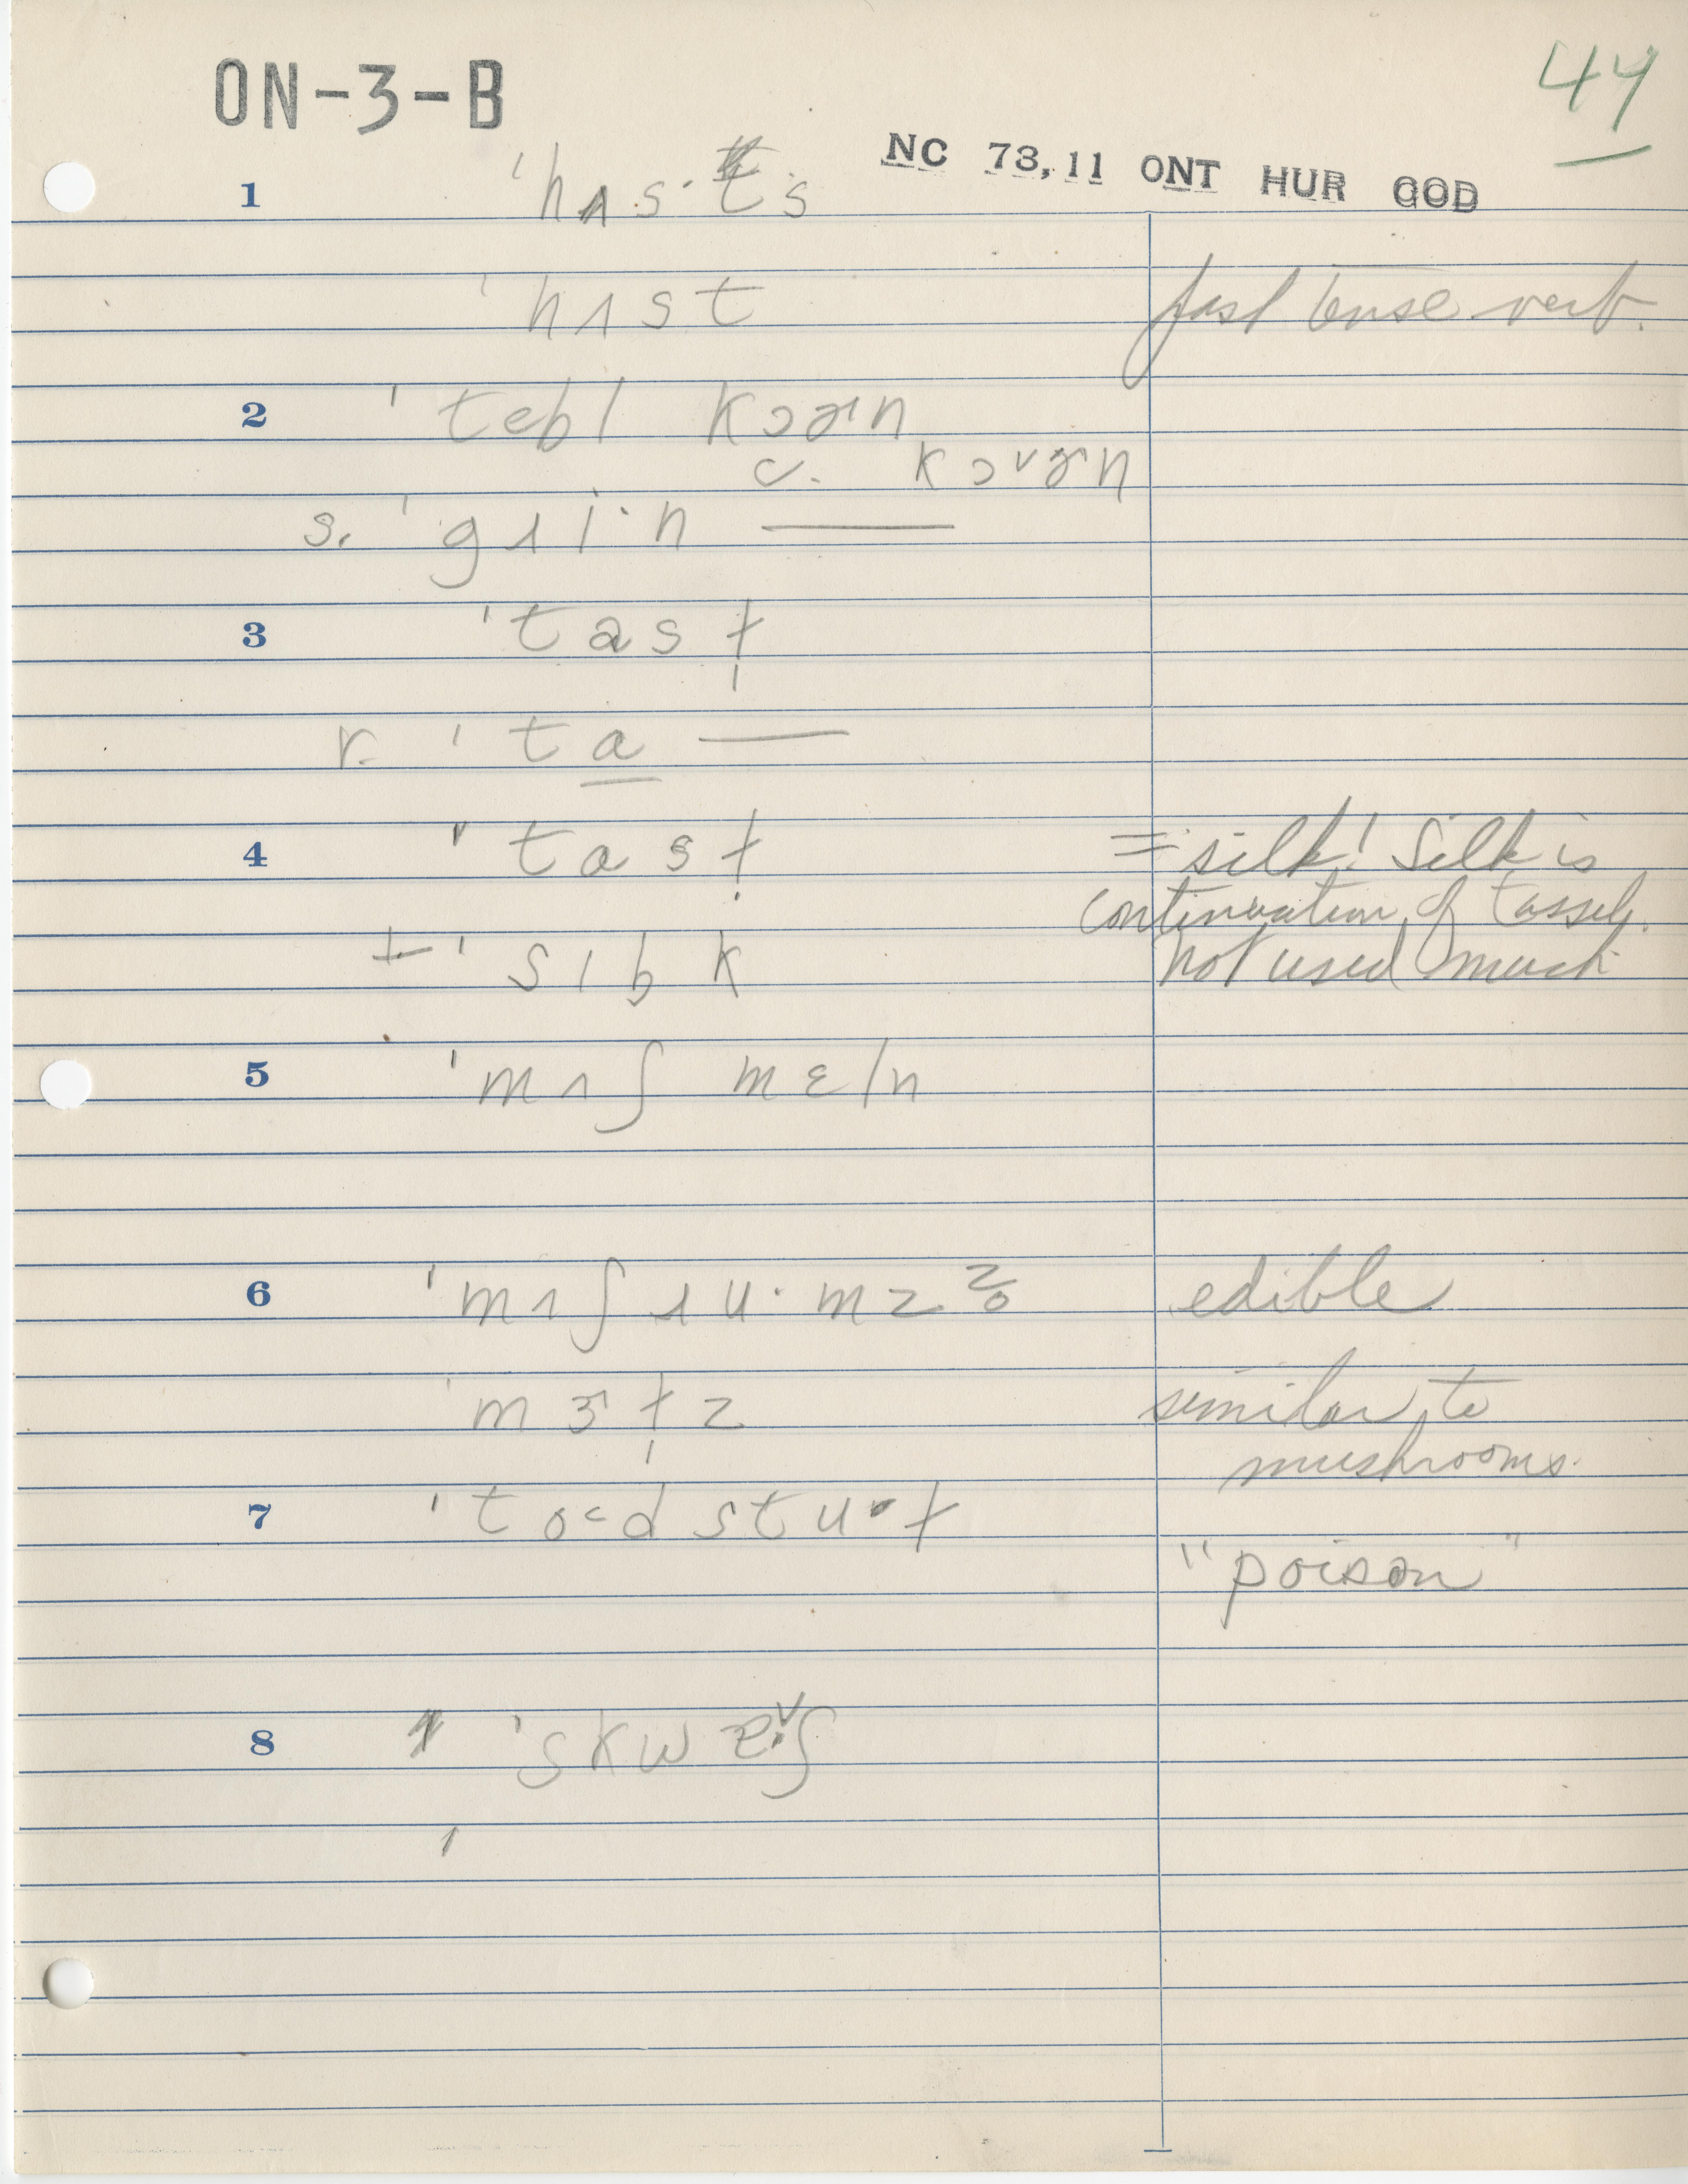 ON-3-B
44
NC 73,11 ONT HUR GOD
1 ˈhʌs·ts
ˈhʌst past tense verb.
2 ˈtebl kɔɚn
c. kɔᵛɚn
s. ˈgɹi·n ——
3 ˈtasɫ̩
r. ˈta ——
4 ˈtasɫ̩ = silk! Silk is
continuation of tassel.
not used much
+ ˈsɪɫk
5 ˈmʌʃ mɛln
6 ˈmʌʃɹu·mz̥ edible
ˈmɝɫ̩z similar to
mushrooms.
7 ˈtoᶜdstu·ɫ
"poison"
8 ˈskw ʃ